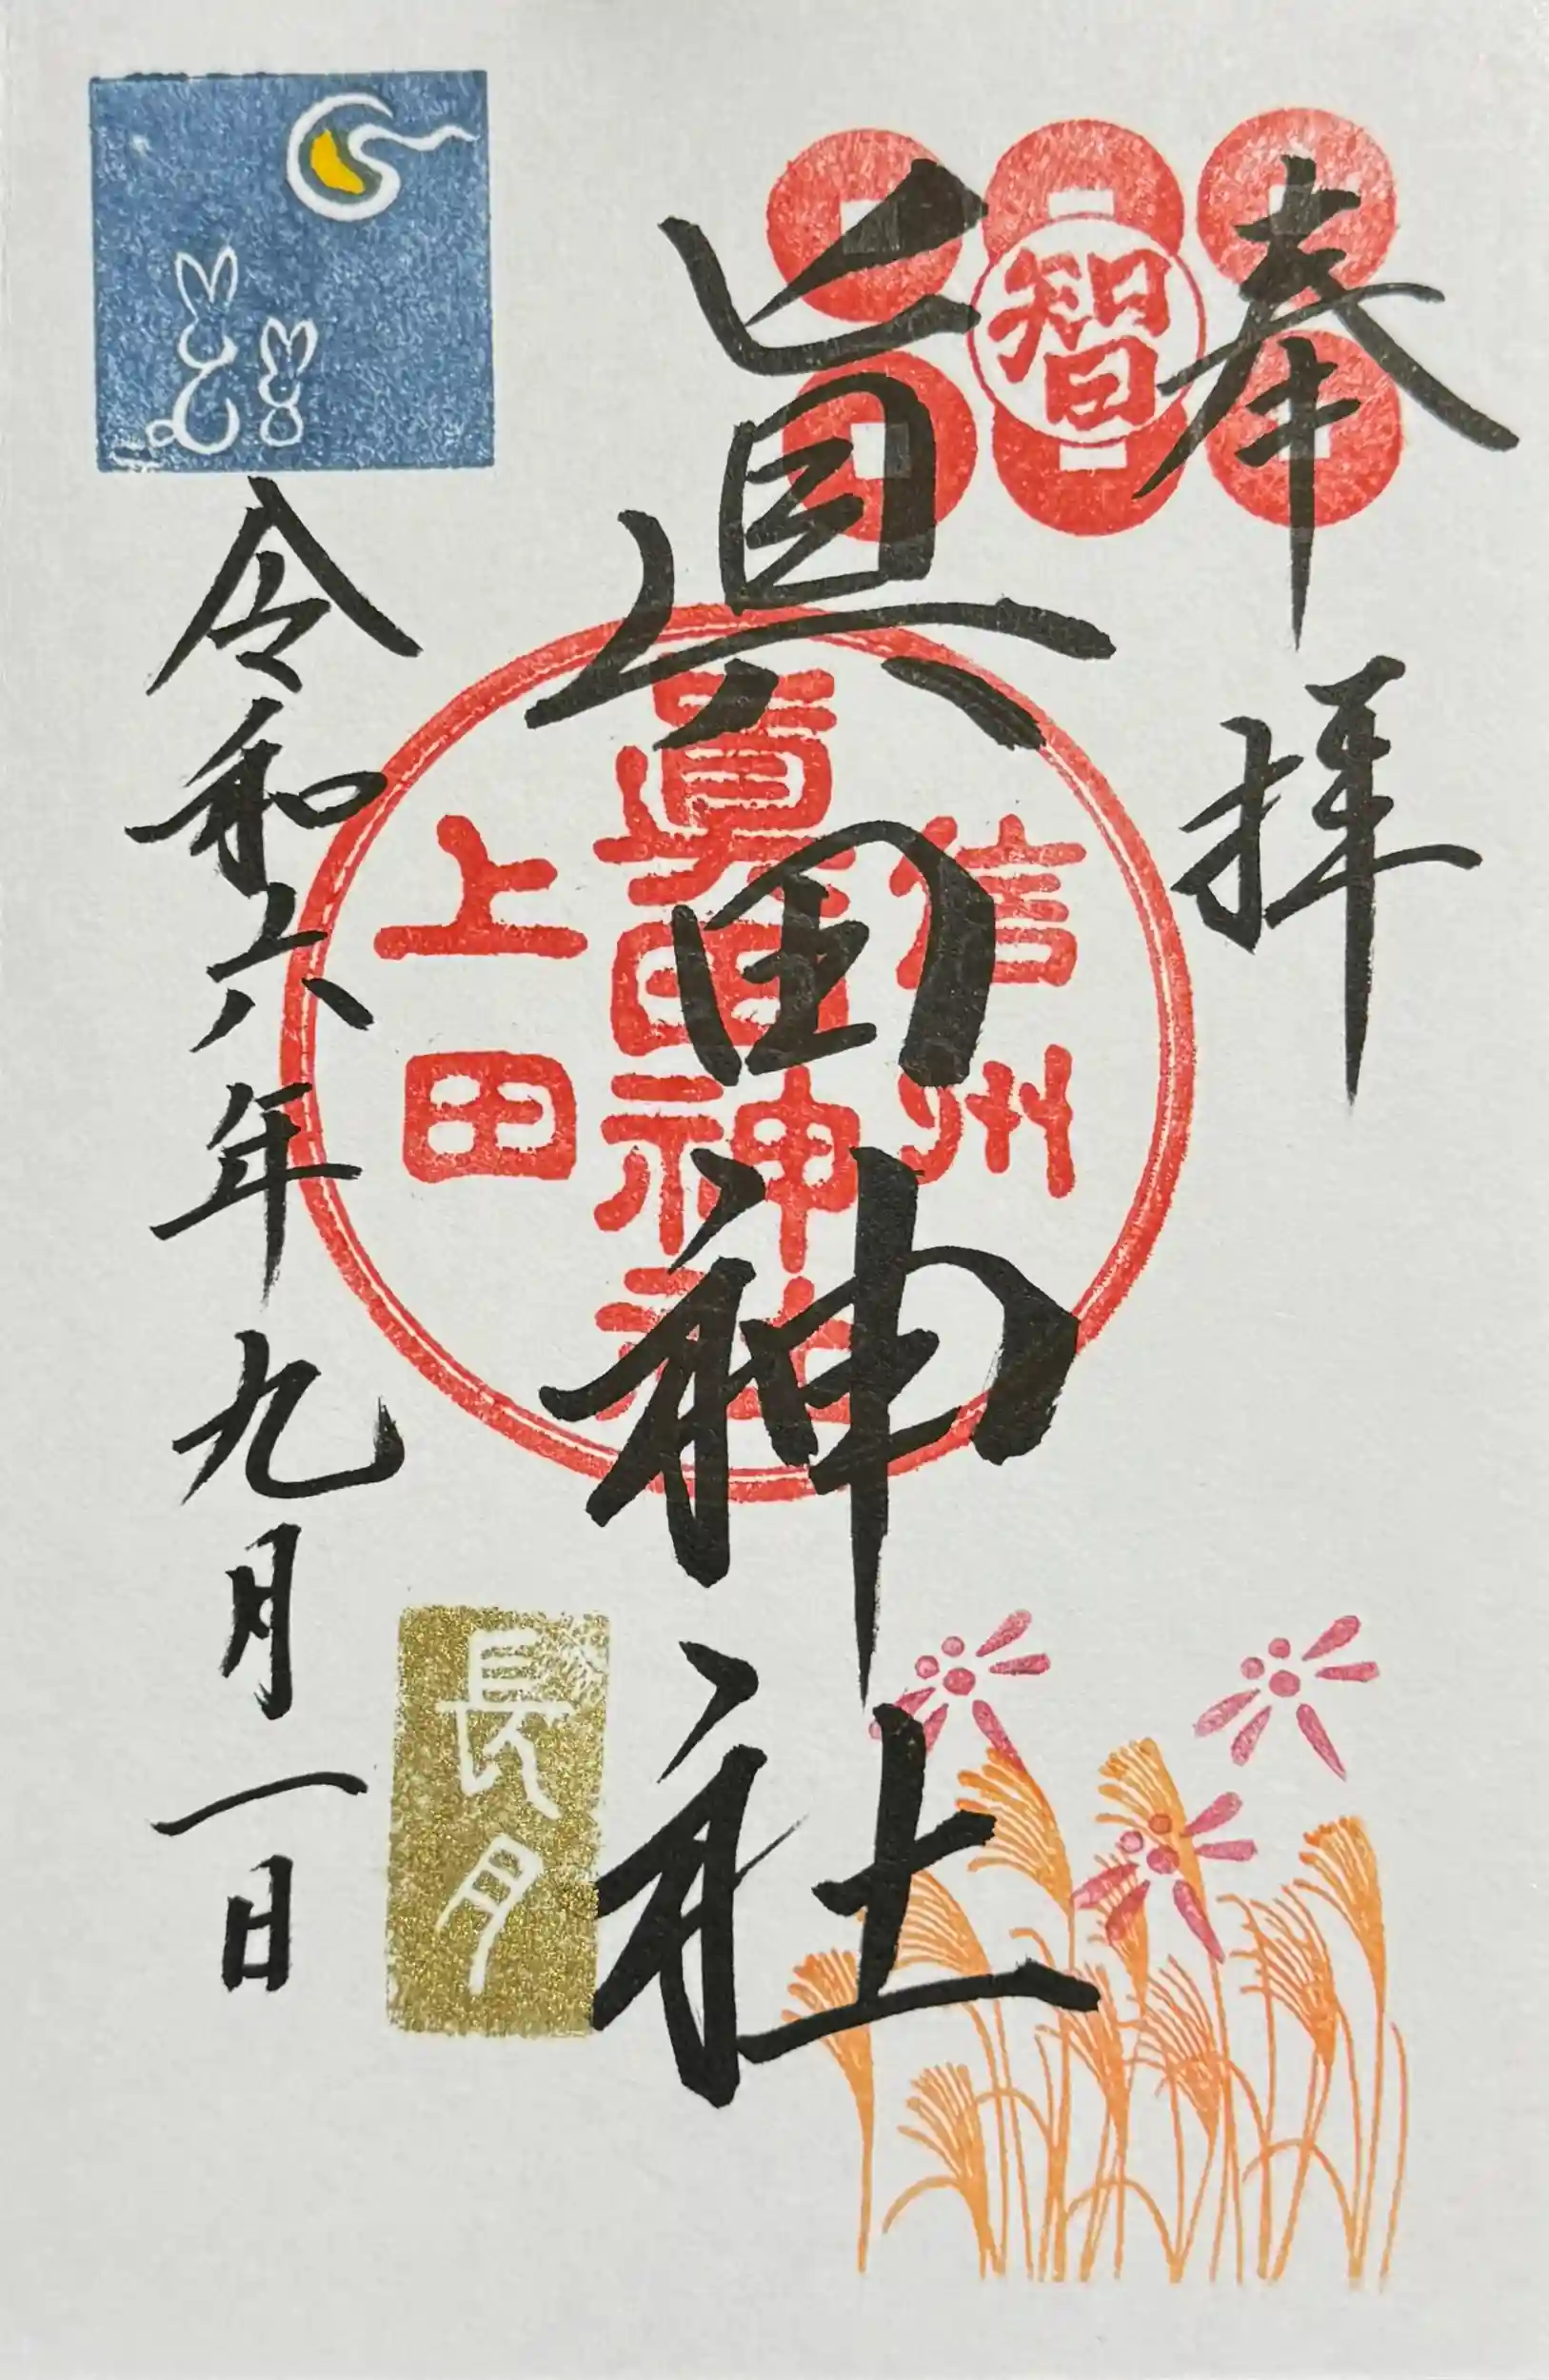 奉拝
智
眞田神社
信州
眞田神社
上田
長月
令和六年九月一日